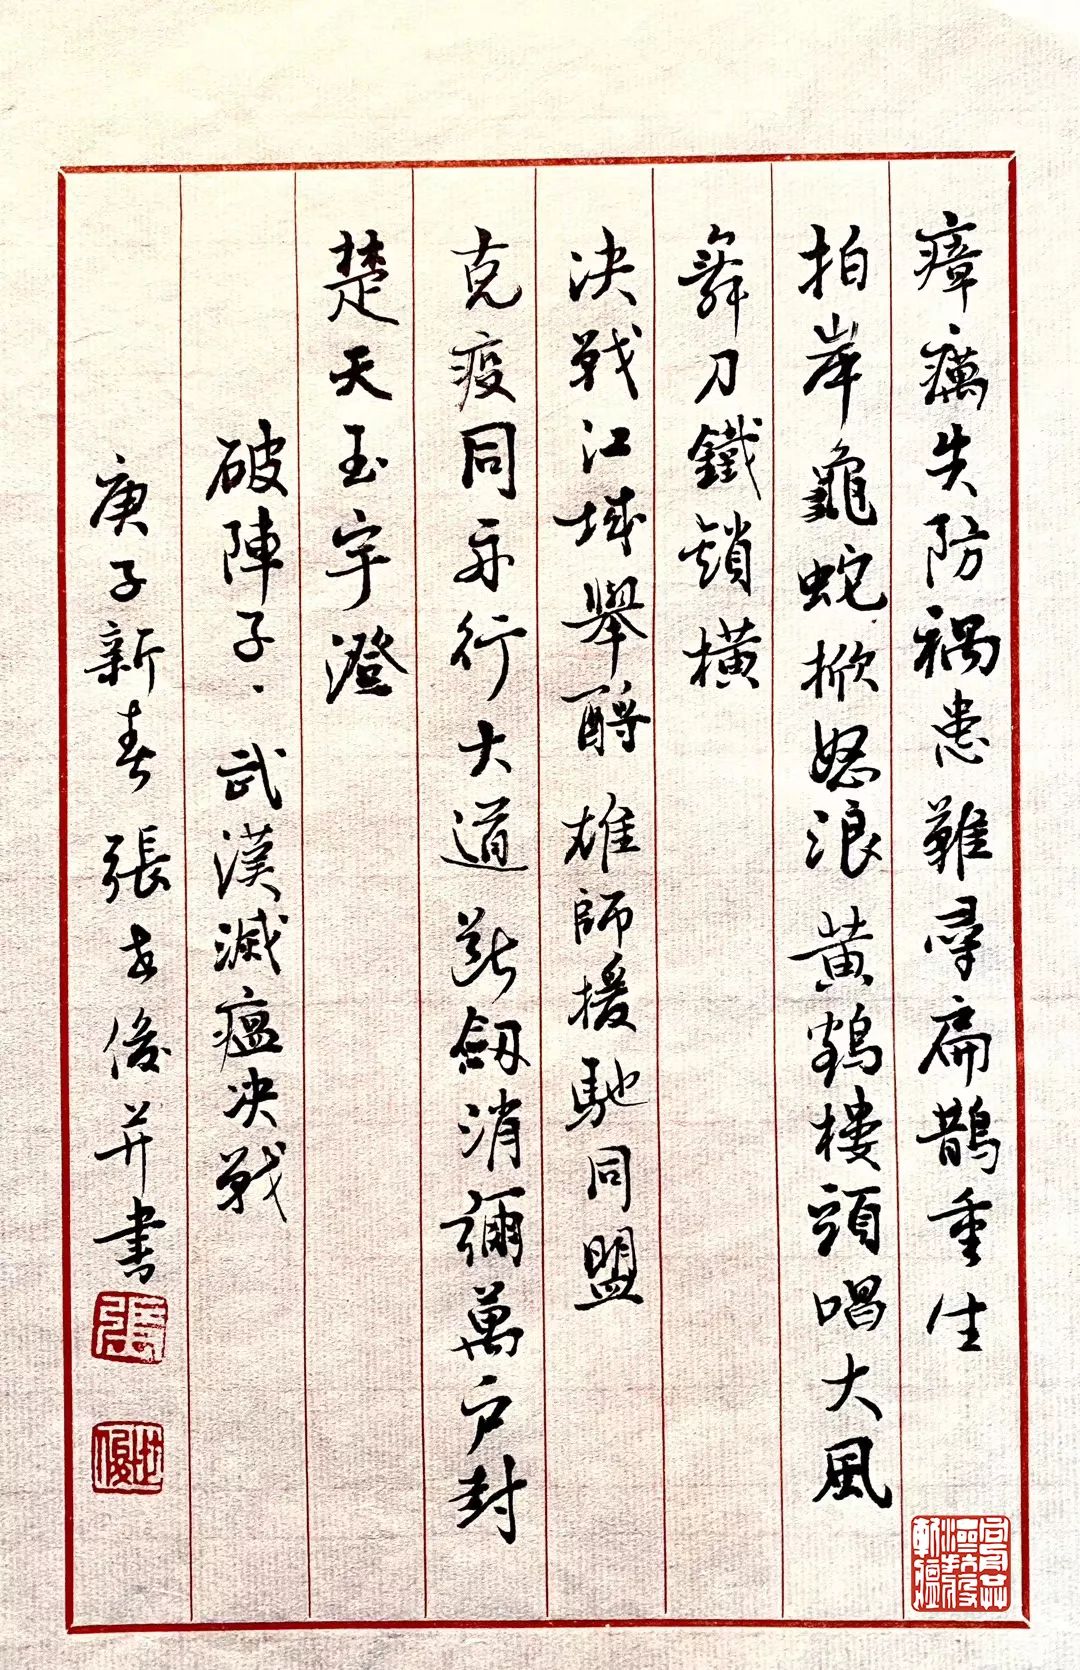 瘴癘失防禍患難尋扁鵲重生
拍岸龜蛇掀怒浪黃鶴樓頭唱大風
舞刀鐵鎖橫
决戰江城舉酹雄師援馳同盟
克疫同舟行大道斷劔消彌萬户封
楚天玉宇澄
破陣子·武漢滅瘟决戰
庚子新春張世俊并書
張
世俊